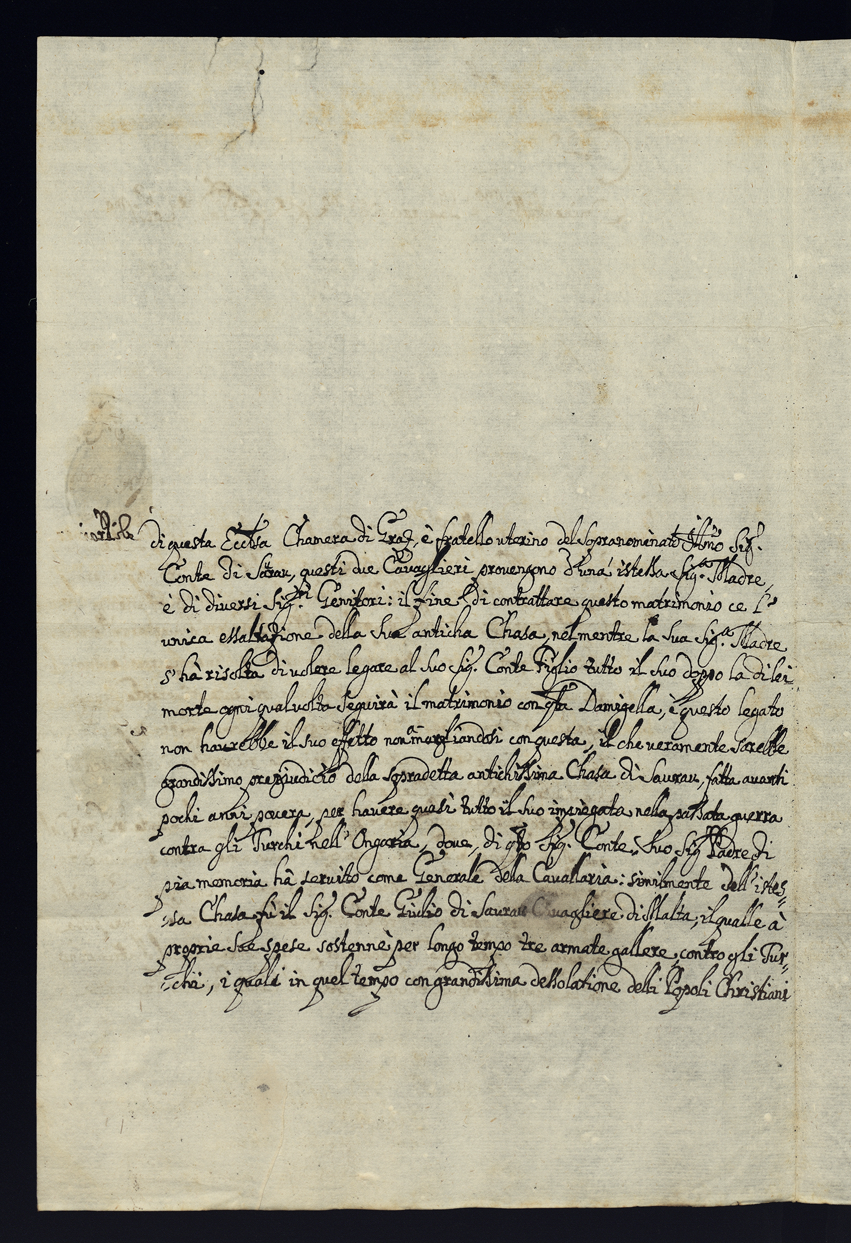 di questa Ecclsa Chamera di Graz, è fratello uterino del Sopranominato Illmo Sigr.
Conte di Saurau, questi due Cavaglieri provengono d'una istessa Sigra. Madre,
è di diversi Sigri. Genitori: il fine di contrattare questo matrimonio ce l'
unica essaltazione della Sua anticha Chasa, nel mentre la Sua Sigra. Madre
s'hà risolta di volere legare al Suo Sigr. Conte Figlio tutto il Suo doppo la di lei
morte ogni qual volta Seguirà il matrimonio con qsta Damigella, è questo legato
non haurebbe il suo effetto non amogliandosi con questa, il che veramente sarebbe
grandissimo pregiudicio della sopradetta antichissima Chasa di Saurau, fatta avanti
pochi anni povera, per havere quasi tutto il Suo impiegata nella passata guerra
contra gli Turchi nell' Ongaria, dove, di qsto Sigr. Conte, Suo Sigr Padre di
pia memoria hà servitto come Generale della Cavallaria: similmente dell' istes-
-sa Chasa fù il Sigr. Conte Giulio di Saurau Cavagliere di Malta, il qualle à
proprie Sue spese sostenne per longo tempo tre armate gallere contro gli Tur-
-chi, i quali in quel tempo con grandissima dessolatione delli Popoli Christiani